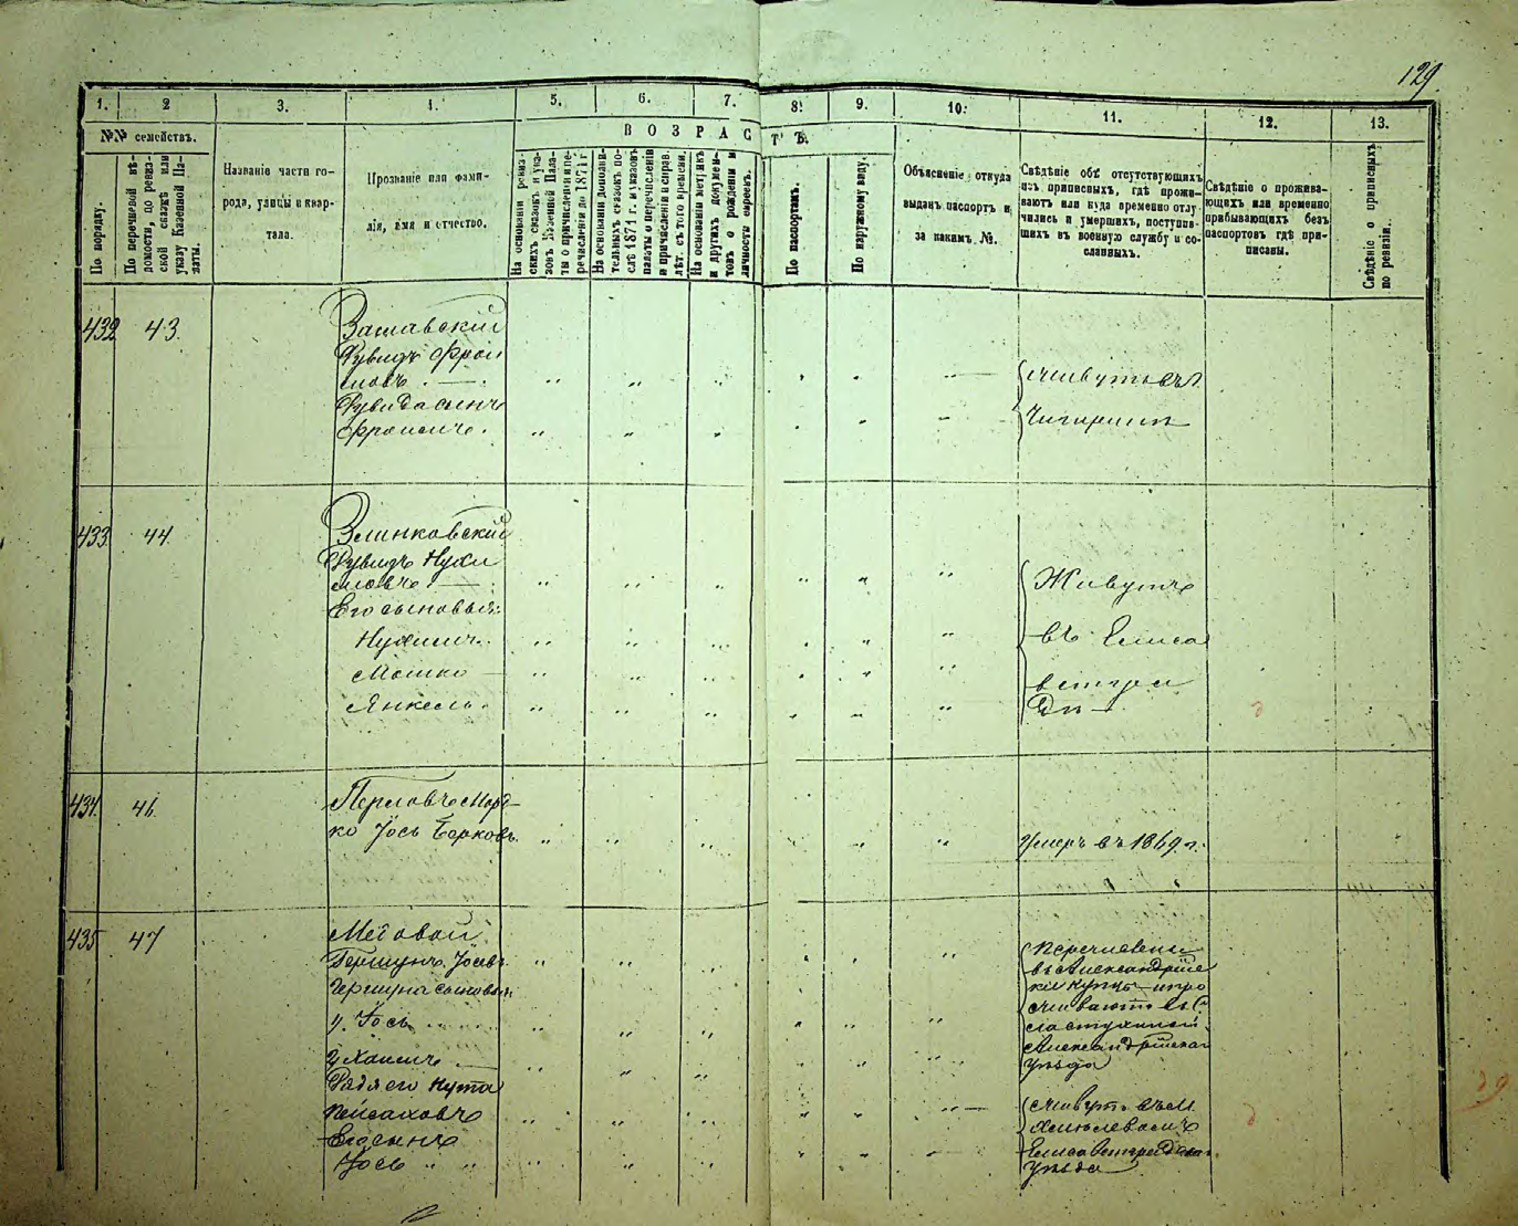 129.
1. 2 3. 4. 5. 6. 7. 8. 9. 10. 11. 12. 13.
№№ семействъ.
ВОЗРАСТЪ.
По порядку.
По перечневой вѣ-
домости, по ревиз-
ской сказкѣ или
указу Казенной Па-
латы.
Названіе части го-
рода, улицы и квар-
тала.
Прозваніе или фами-
лія, имя и отчество.
На основаніи ревиз-
скихъ сказокъ и ука-
зовъ Казенной Пала-
ты о причисленіи и пе-
речисленіи до 1871 г
На основаніи дополни-
тельныхъ сказокъ по-
слѣ 1871 г. и указовъ
палаты о перечисленіи
и причисленіи и справ.
лѣт. съ того времени.
На основаніи метрикъ
и другихъ докумен-
товъ о рожденіи и
личности евреевъ.
По паспортамъ.
По наружному виду.
Объясненіе откуда
выданъ паспортъ и
за какимъ №.
Свѣдѣніе объ отсутствующихъ
изъ приписныхъ, гдѣ прожи-
ваютъ или куда временно отлу-
чились и умершихъ, поступив-
шихъ въ военную службу и со-
сланныхъ.
Свѣдѣніе о прожива-
ющихъ или временно
прибывающихъ безъ
паспортовъ гдѣ при-
писаны.
Свѣдѣніе о приписныхъ
по ревизіи.
432 43.
Рувидъ Фрои
мовъ
Рувида сынъ
Фроимъ.
живутъ въ
Чигирин
433 44.
Злинковскій
Рувидъ Нухи
мовъ
Его сыновья:
Нухимъ
Мошко
Янкель
Живутъ
въ Елиса
ветгра
дѣ
434. 46.
Перловъ Морд-
ко Іось Берковъ
Умеръ въ 1869 г.
435 47
Гершунъ Іосев
Гершуна сыновья
1. Іось
2 Хаимъ
Дядя его Нута
Пейсаховъ
Его сынъ
Іось
Перечислены
въ Александрійс
кіе купцы и про
живаютъ въ С.
Александрійскаго
уѣзда
живутъ въ М.
Хмѣлевомъ
Елисаветградскаго
уѣзда